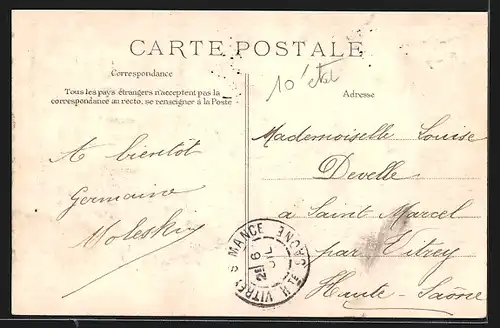 CARTE POSTALE
Correspondance
Tous les pays étrangers n'acceptent pas la
correspondance au recto, se renseigner à la Poste
A bientôt
Germaine
10
Adresse
Mademoiselle Louise
Develle
a Saint Marcel
par Vitrey
Haute-Saône
VITREY S MANCE
Hte SAONE
6
JUIL